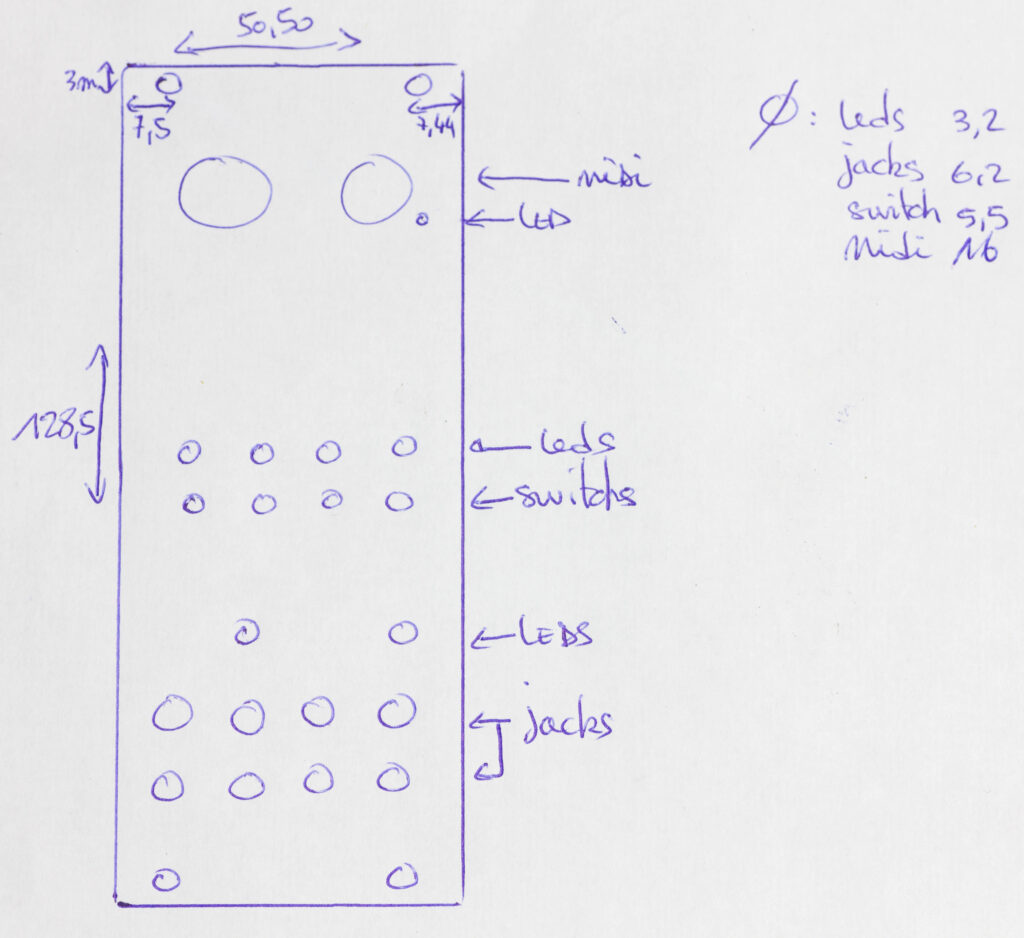 50,50
3m
7,5
7,44
Ø: leds 3,2
jacks 6,2
switch 5,5
Midi 16
midi
LED
128,5
leds
switchs
LEDS
jacks